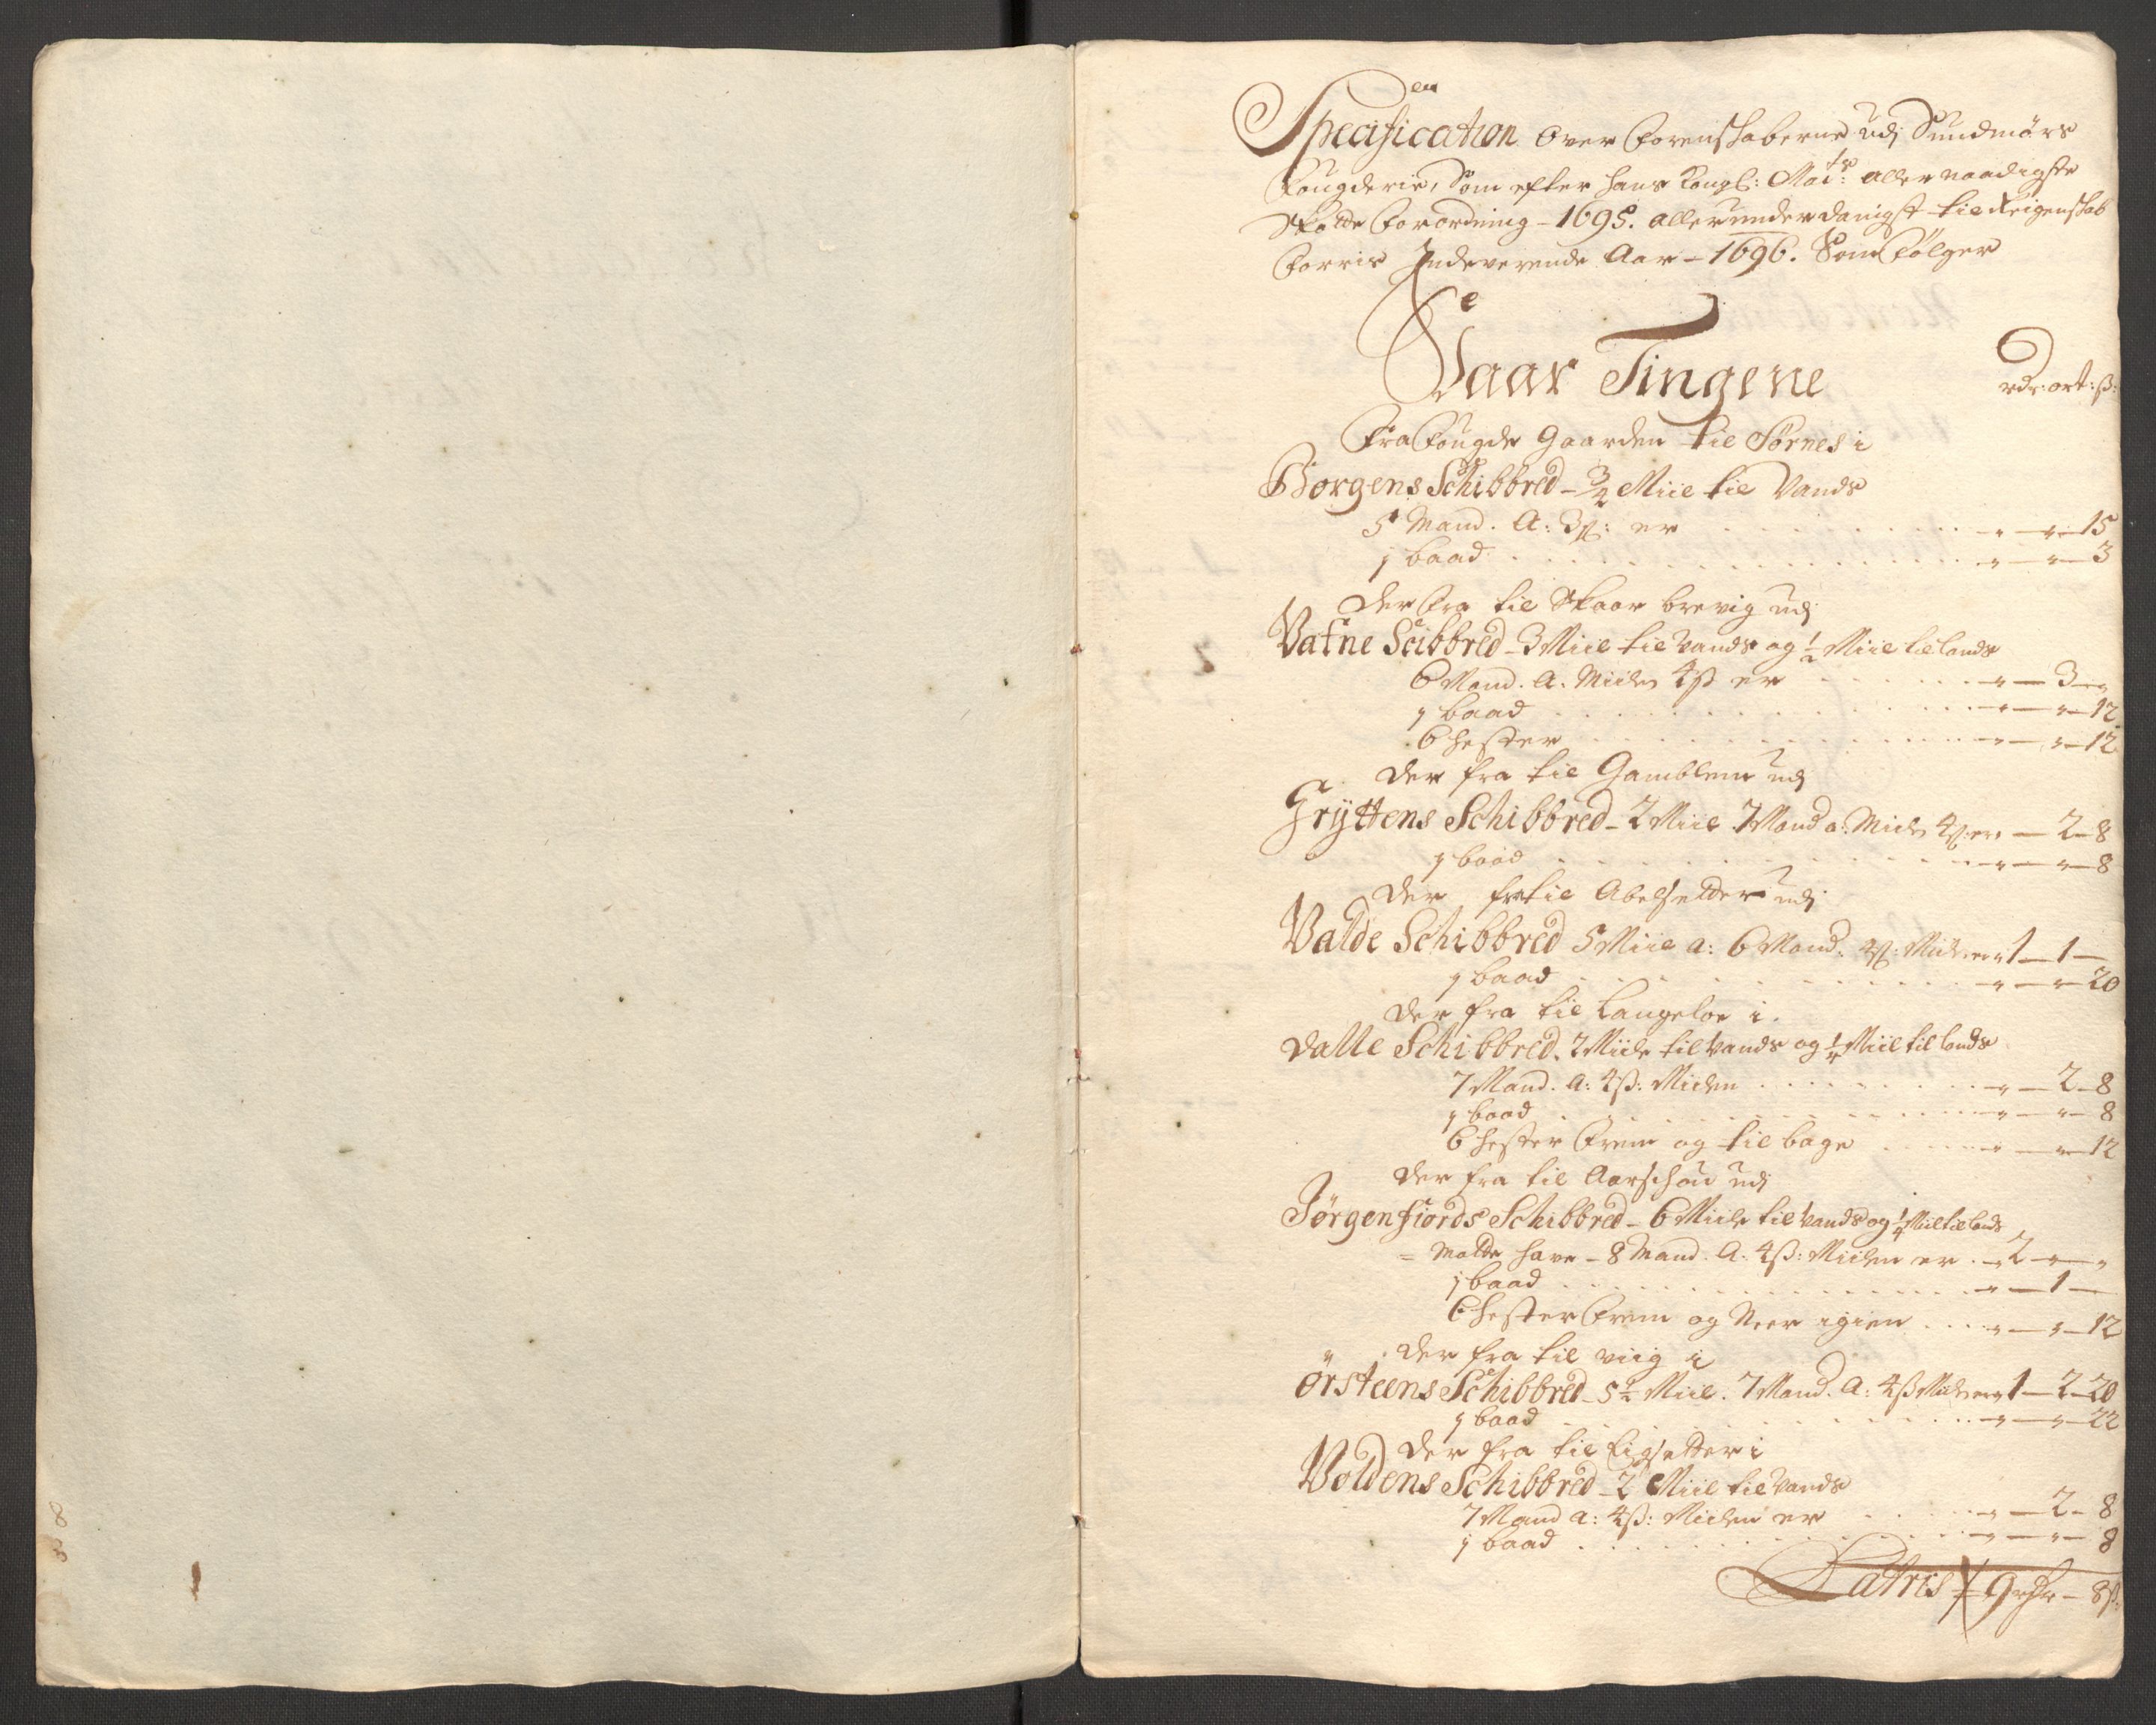 en
Specification Over Forenskaberne udj Sundmörs
Fougderie, Som efter hans Kongl: Maits: aller naadigste
Skatte Forordning - 1695. allerunderdanigst til Reigenskab
Førris Indeverende Aar - 1696. Som Følger
Vaar Tingene
rdr: ort: ß:
Fra Fougde Gaarden til Sørnes i
Borgens Schibbred - 3/4 Miil til Vands
5 Mand. A: 3ß: er - " - " - 15
1 baad - " - " - 3
der Fra til Skaar brevig udj
Vatne Scibbred - 3 Miil til Vands og 1/2 Miil til lands
6 Mand. A. Miilen 4ß er - " - 3 - "
1 baad - " - " - 12
6 hester - " - " - 12
der fra til Gamblem udj
Gryttens Schibbred - 2 Miil 7 Mand a: Miilen 4ß: er - 2 - 8
1 baad - " - " - 8
der fra til Abelsetter udj
Valde Schibbred 5 Miil a: 6 Mand: 4ß: Miilen er 1 - 1 -
1 baad - " - " - 20
der fra til Langeloe i.
Dalle Schibbred. 2 Miile til Vands og 1/4 Miil til lands
7 Mand. A: 4ß: Miilen - " - 2 - 8
1 baad - " - " - 8
6 hester Frem og til bage - " - " - 12
der fra til Aarschou udj
Jørgenfiords Schibbred - 6 Miile til Vands og 1/4 Miil til lands
= Matte have - 8 Mand. A. 4ß: Miilen er - 2 - " - "
1 baad - " - 1 -
6 hester Frem og Neer igien - " - " - 12
der fra til viig i
Ørsteens Schibbred - 5 1/2 Miil. 7 Mand. A: 4ß Miilen er 1 - 2 - 20
1 baad - " - " - 22
der fra til Eigsetter i
Voldens Schibbred - 2 Miil til Vands
7 Mand a: 4ß: Miilen er - " - 2 - 8
1 baad - " - " - 8
Latris 9 rdr - 8ß: